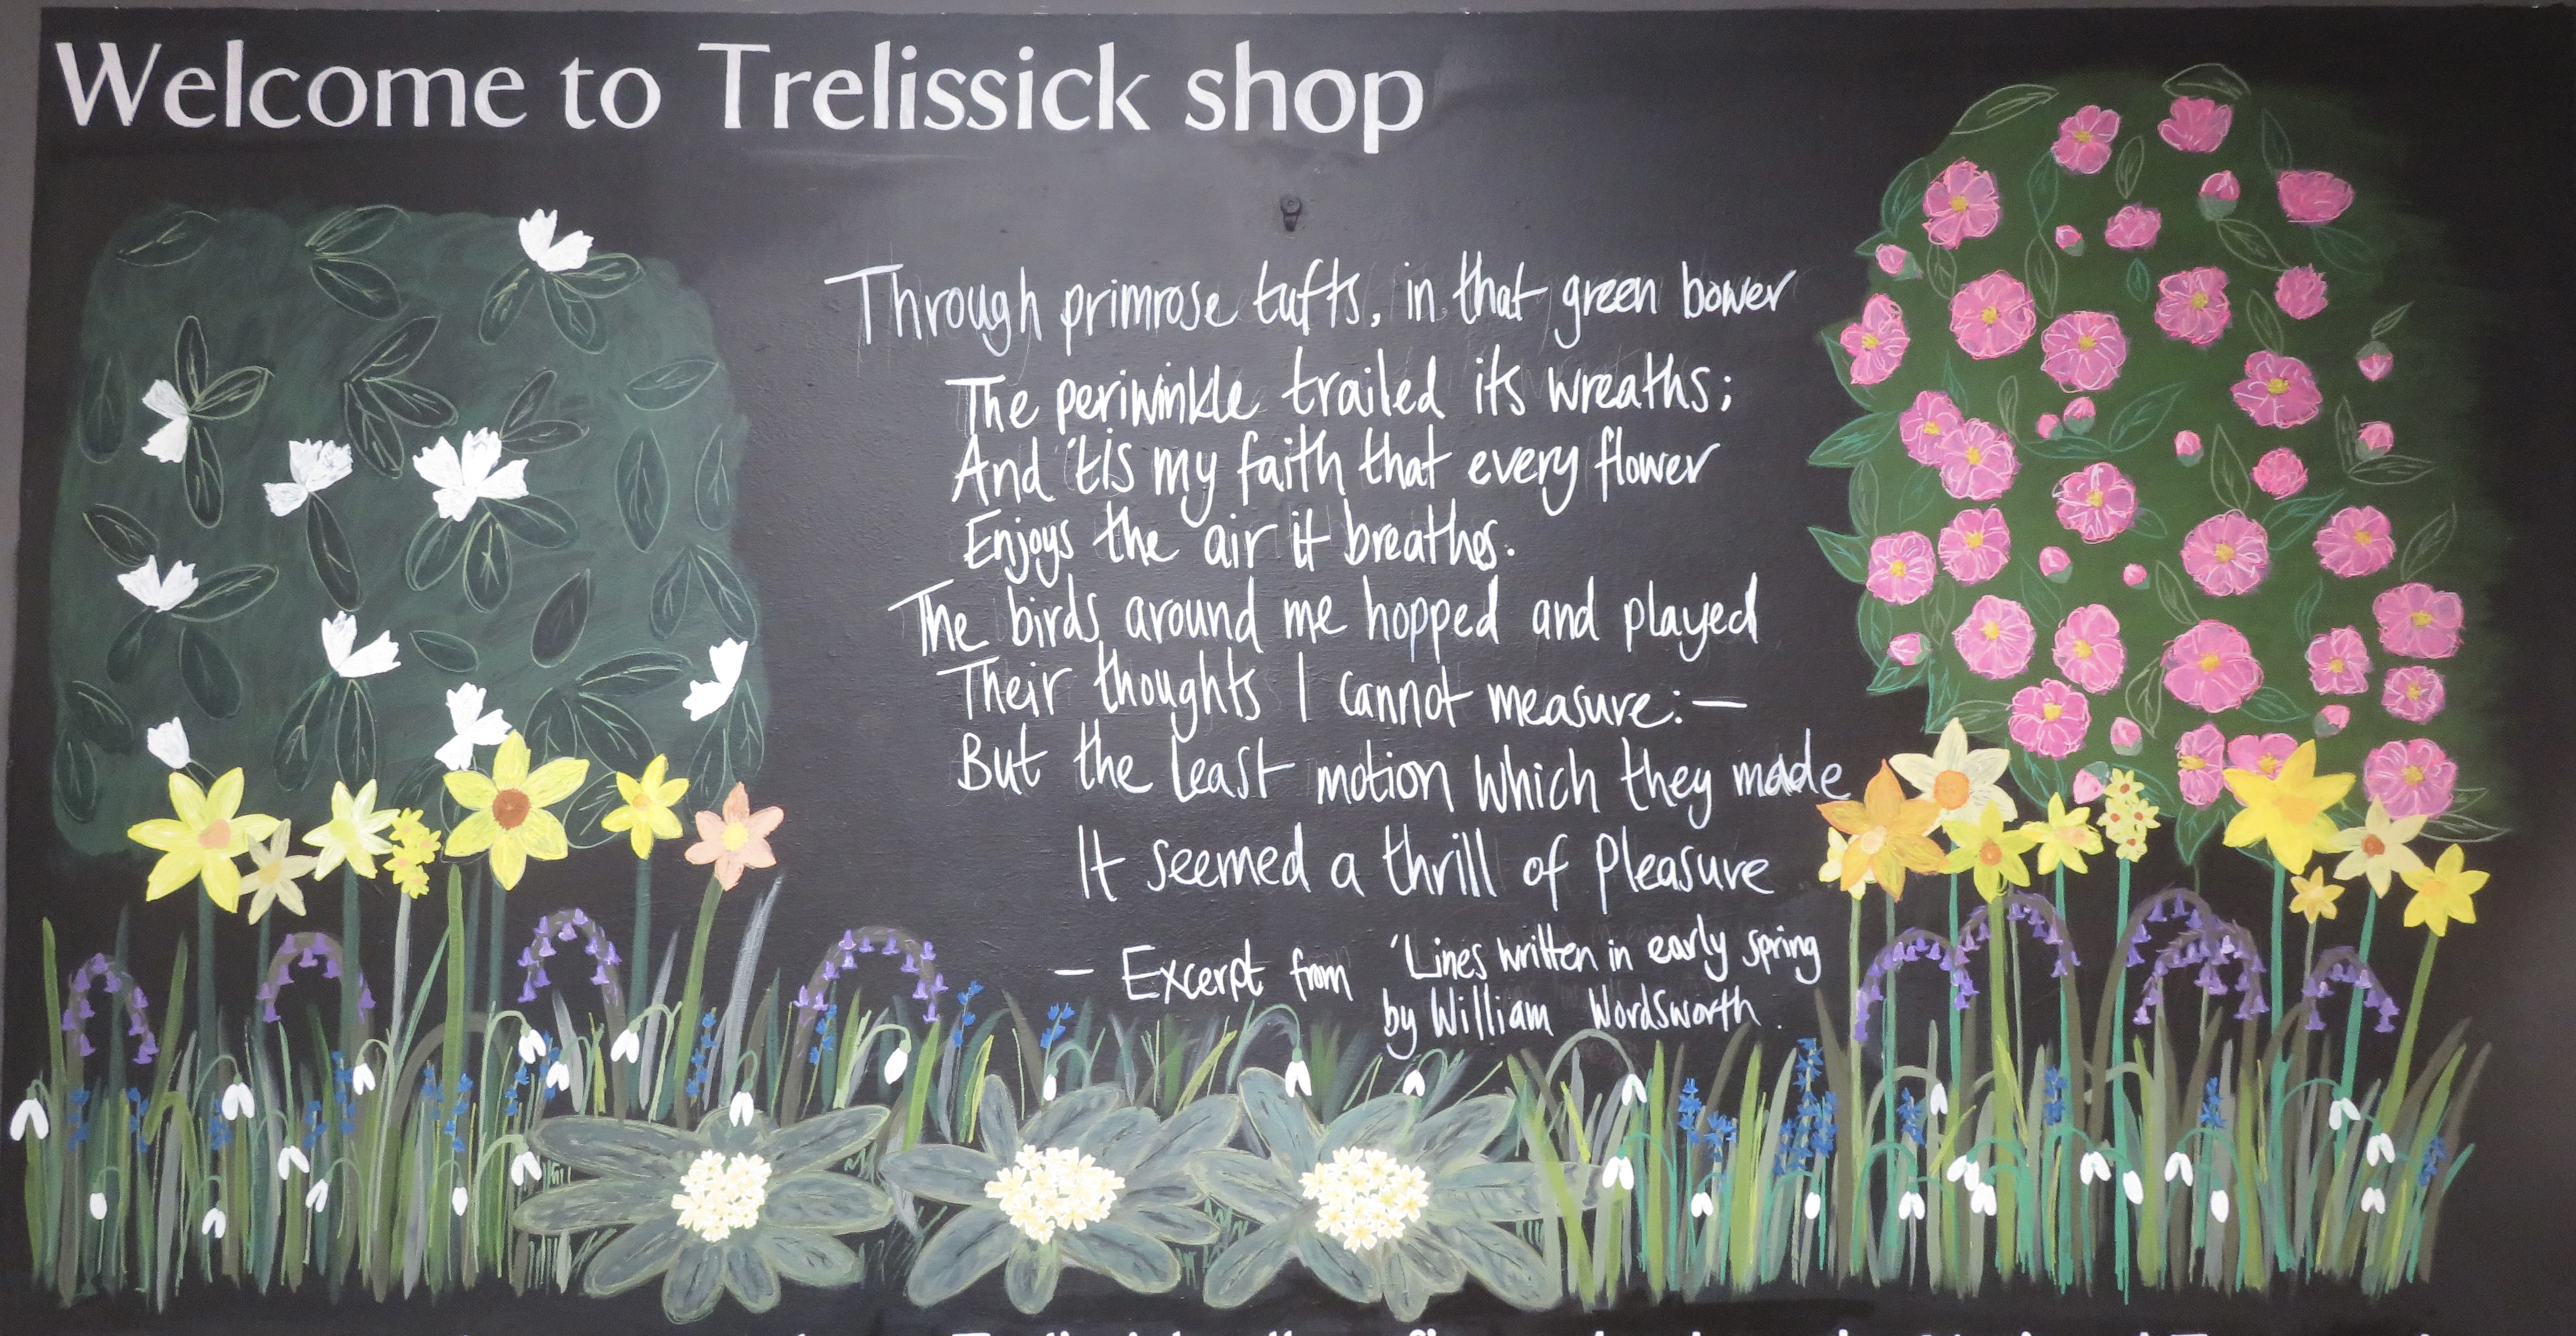 Welcome to Trelissick shop
Through primrose tufts, in that green bower
The periwinkle trailed its wreaths;
And 'tis my faith that every flower
Enjoys the air it breathes.
The birds around me hopped and played
Their thoughts I cannot measure:—
But the least motion which they made
It seemed a thrill of pleasure
— Excerpt from 'Lines written in early spring
by William Wordsworth.